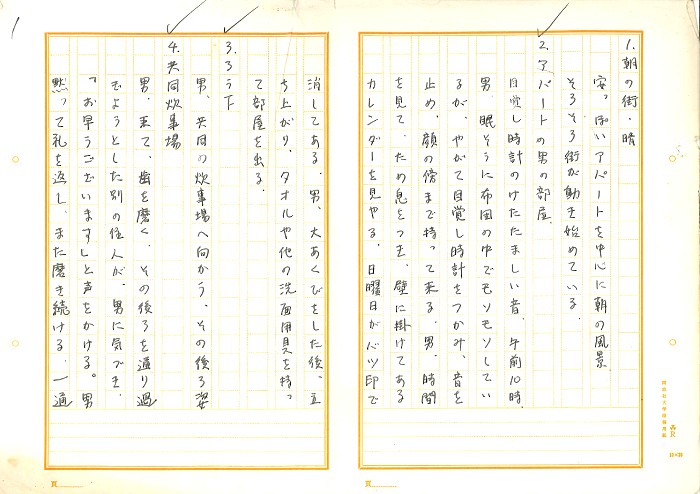 1. 朝の街・晴
安っぽいアパートを中心に朝の風景、
そろそろ街が動き始めている。
2. アパートの男の部屋、
目覚し時計のけたたましい音、午前10時、
男、眠そうに布団の中でモソモソしてい
るが、やがて目覚し時計をつかみ、音を
止め、顔の傍まで持って来る、男、時間
を見て、ため息をつき、壁に掛けてある
カレンダーを見やる、日曜日がバツ印で
消してある、男、大あくびをした後、立
ち上がり、タオルや他の洗面用具を持っ
て部屋を出る、
3. ろう下
男、共同の炊事場へ向かう、その後ろ姿
4. 共同炊事場
男、来て、歯を磨く、その後ろを通り過
ぎようとした別の住人が、男に気づき、
「お早うございます」と声をかける。男
黙って礼を返し、また磨き続ける、一通
頁
頁